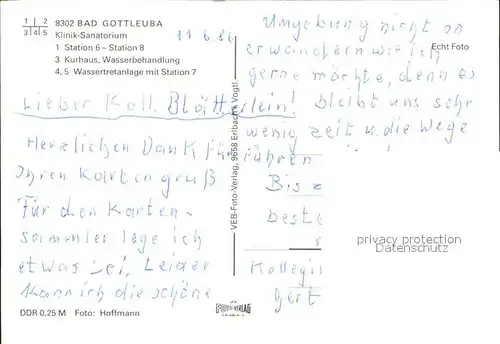 1 | 2
3 | 4 | 5
8302 BAD GOTTLEUBA
Klinik-Sanatorium
1 Station 6 – Station 8
3 Kurhaus, Wasserbehandlung
4, 5 Wassertretanlage mit Station 7
11.6.86
Lieber Koll. Blätterlein!
Herzlichen Dank für
Ihren Kartengruß
Für den Karten-
sammler lege ich
etwas bei. Leider
kann ich die schöne
DDR 0,25 M Foto: Hoffmann
VEB-Foto-Verlag, 9658 Erlbach i. Vogtl.
Umgebung nicht so
erwandern wie ich
Echt Foto
gerne möchte, denn es
bleibt uns sehr
wenig Zeit u die Wege
führen
Bis z
beste
privacy protection
Datenschutz
Kollegi
Gert